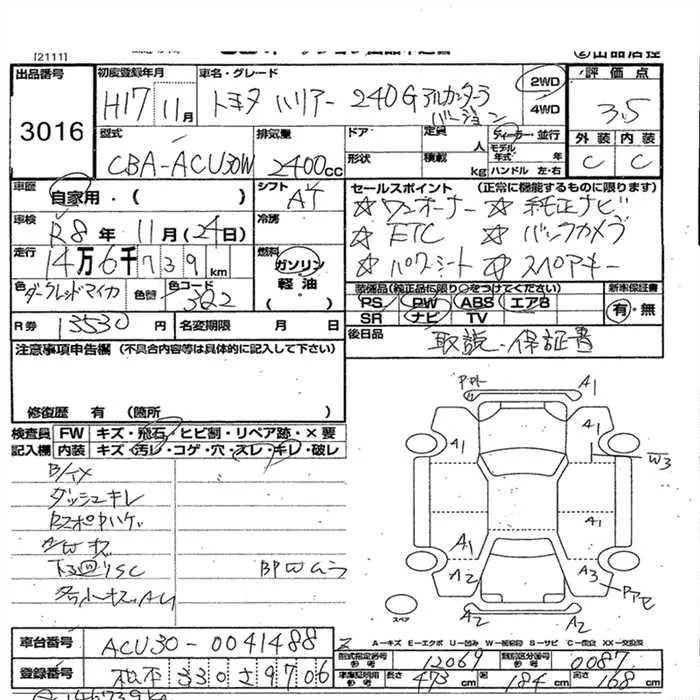 [2111]
出品番号
3016
初度登録年月
H17年11月
車名・グレード
トヨタ ハリアー 240G アルカンターラバージョン
2WD
4WD
評価点
3.5
外装 内装
C C
型式
CBA-ACU30W
排気量
2400cc
ドア・
形状
定員 人
積載 kg
ディーラー・並行
モデル年式 年
ハンドル 左・右
車歴
自家用・( )
シフト
AT
車検
R8年11月(24日)
冷房
走行
14万6千739km
燃料
ガソリン
軽油
( )
色
ダークレッドマイカ
色替
色コード
3Q2
R券 13530円
名変期限 月 日
セールスポイント (正常に機能するものに限ります)
☆ワンオーナー ☆純正ナビ
☆ETC ☆バックカメラ
☆パワーシート ☆スペアキー
装備品(純正品に限り○をつけてください)
新車保証書
PS PW ABS エアB
SR ナビ TV
有・無
後日品
取説・保証書
注意事項申告欄 (不具合内容等は具体的に記入して下さい)
修復歴 有 (箇所 )
検査員記入欄
FW キズ・飛石・ヒビ割・リペア跡・×要
内装 キズ・汚レ・コゲ・穴・スレ・キレ・破レ
ダッシュキレ
A1
A1
A1
W3
A1
A1
A2
A3
A2
A2
スペア
A-キズ E-エクボ U-凹み W-補修跡 S-サビ C-腐食 XX-交換歴
車台番号
ACU30-0041488
登録番号
松本 330 さ 9706
型式指定番号 参考
12069
類別区分番号 参考
0087
車庫証明用 参考
長さ 473cm
幅 184cm
高さ 168cm